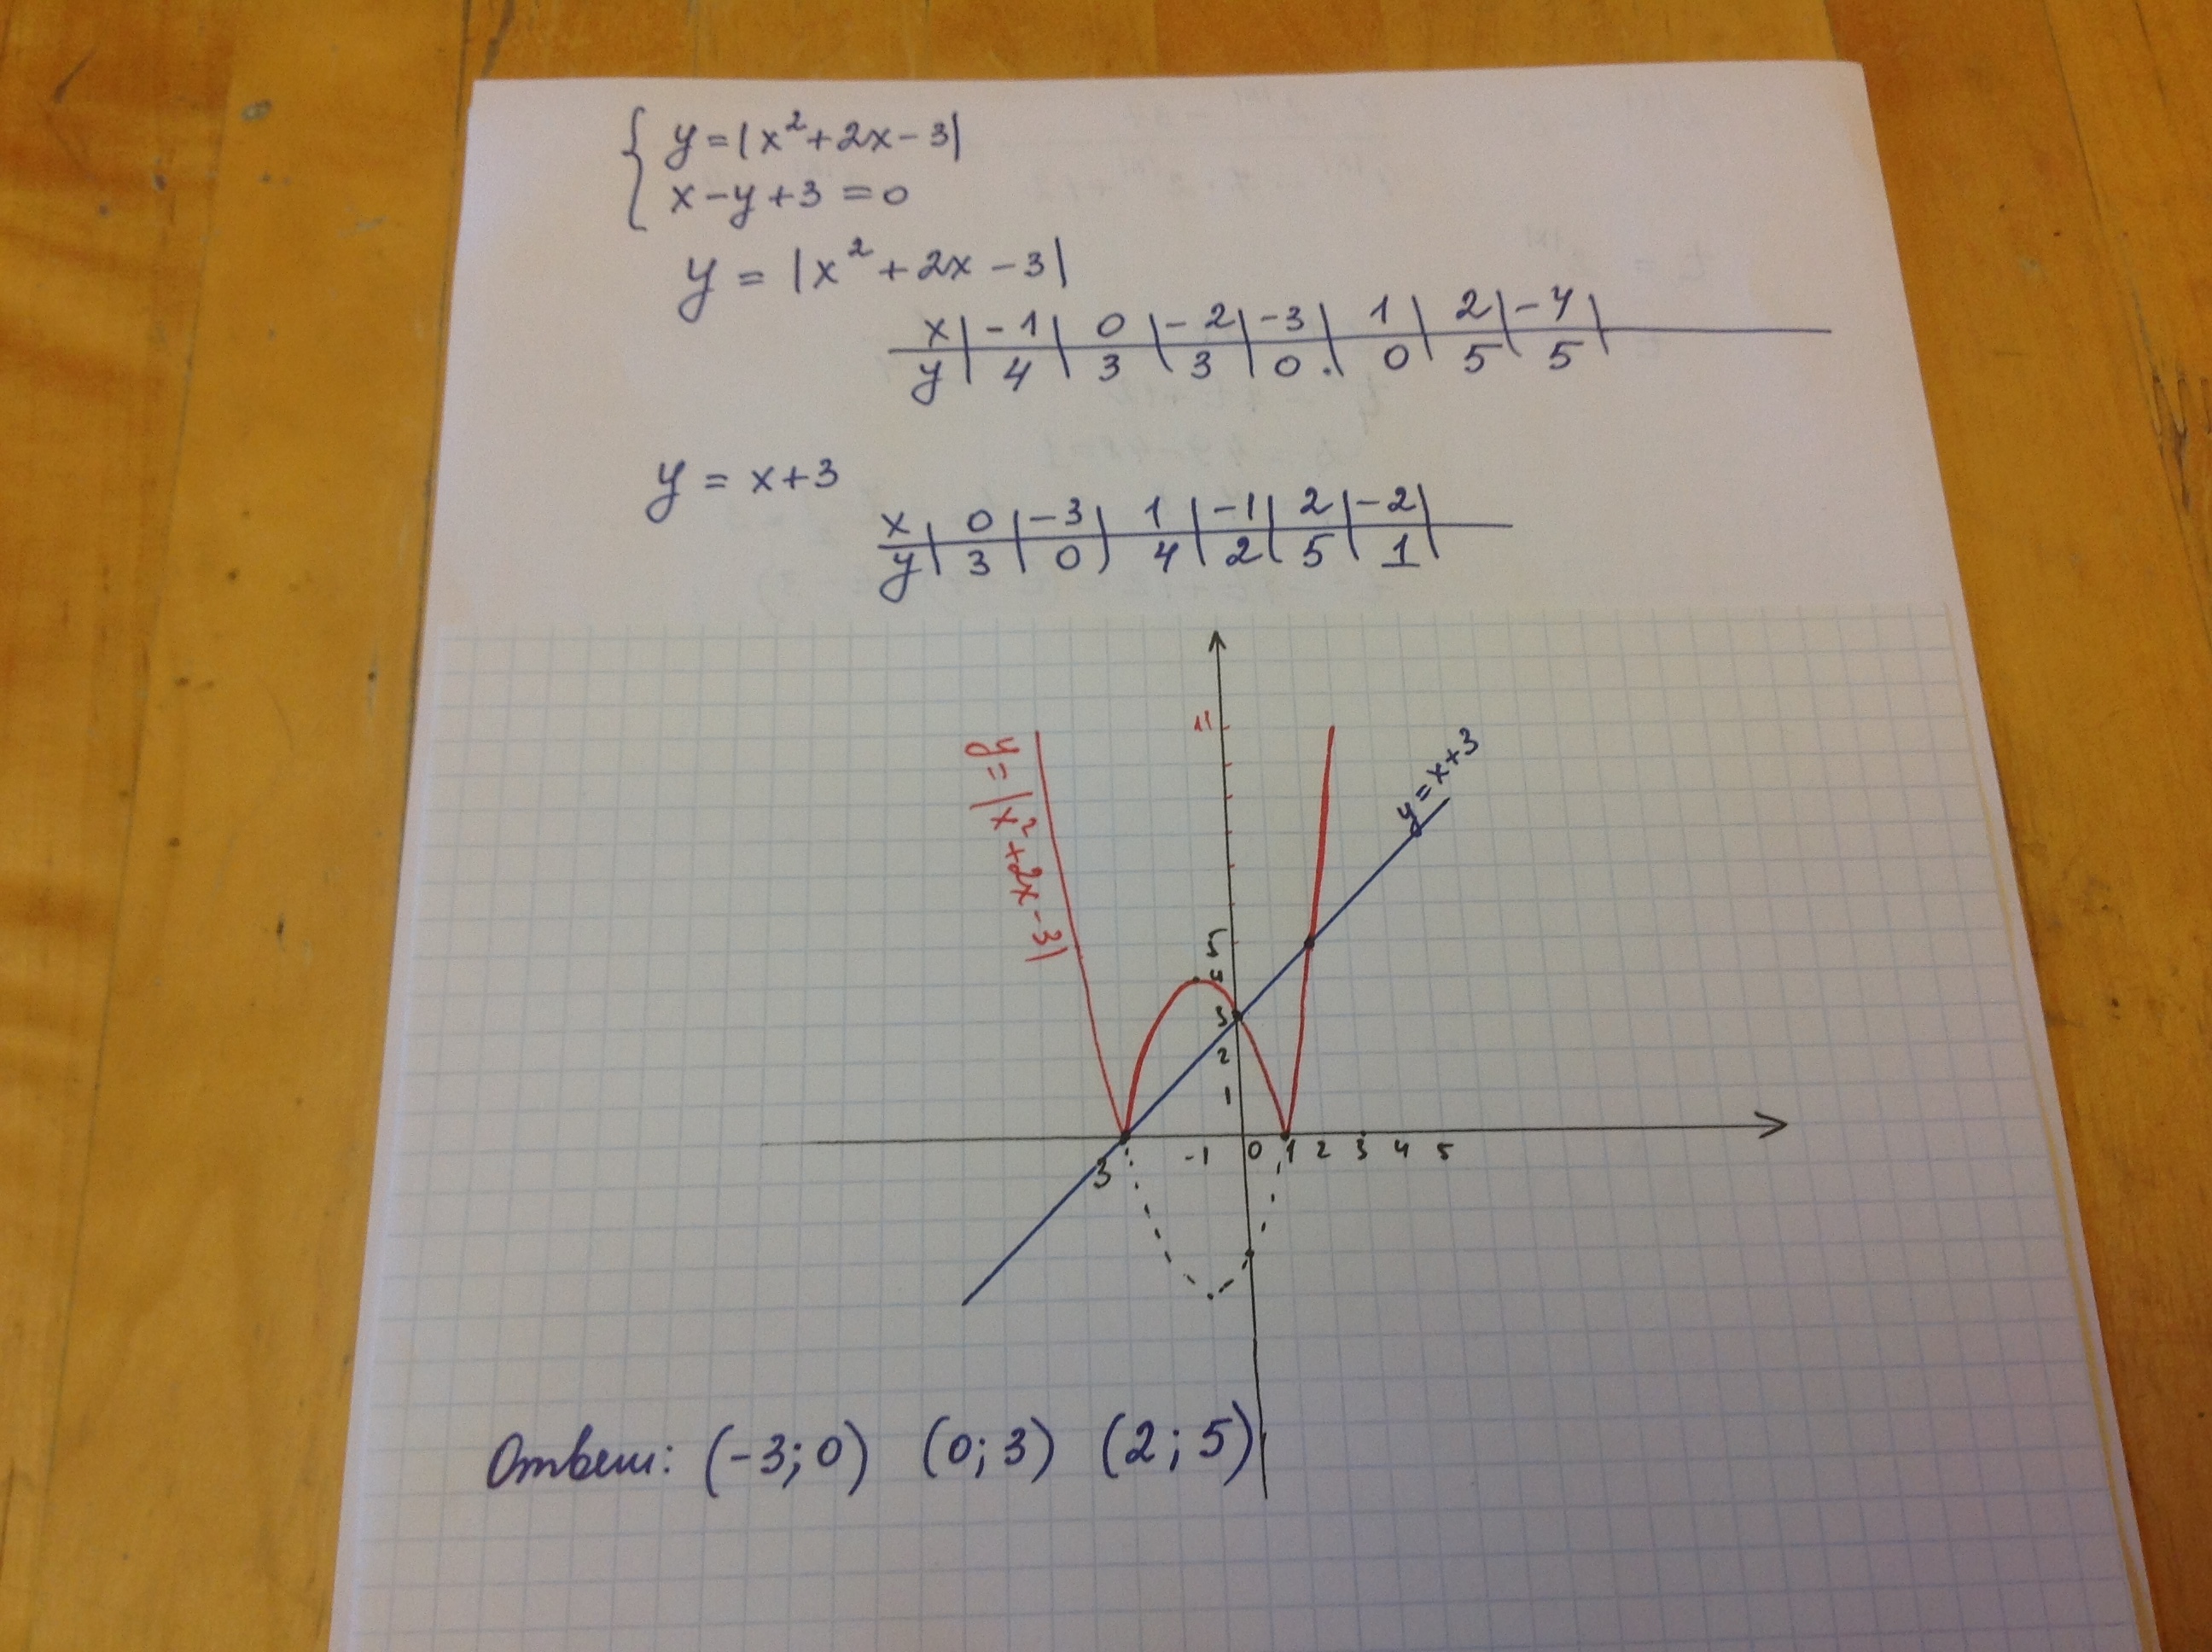 y=|x²+2x-3|
x-y+3=0
y = |x²+2x-3|
x | -1 | 0 | -2 | -3 | 1 | 2 | -4 |
y | 4 | 3 | 3 | 0 . | 0 | 5 | 5 |
y = x+3
x | 0 | -3 | 1 | -1 | 2 | -2 |
y | 3 | 0 | 4 | 2 | 5 | 1 |
11
y=|x²+2x-3|
y=x+3
5
4
3
2
1
3 -1 0 1 2 3 4 5
Ответ: (-3;0) (0;3) (2;5)